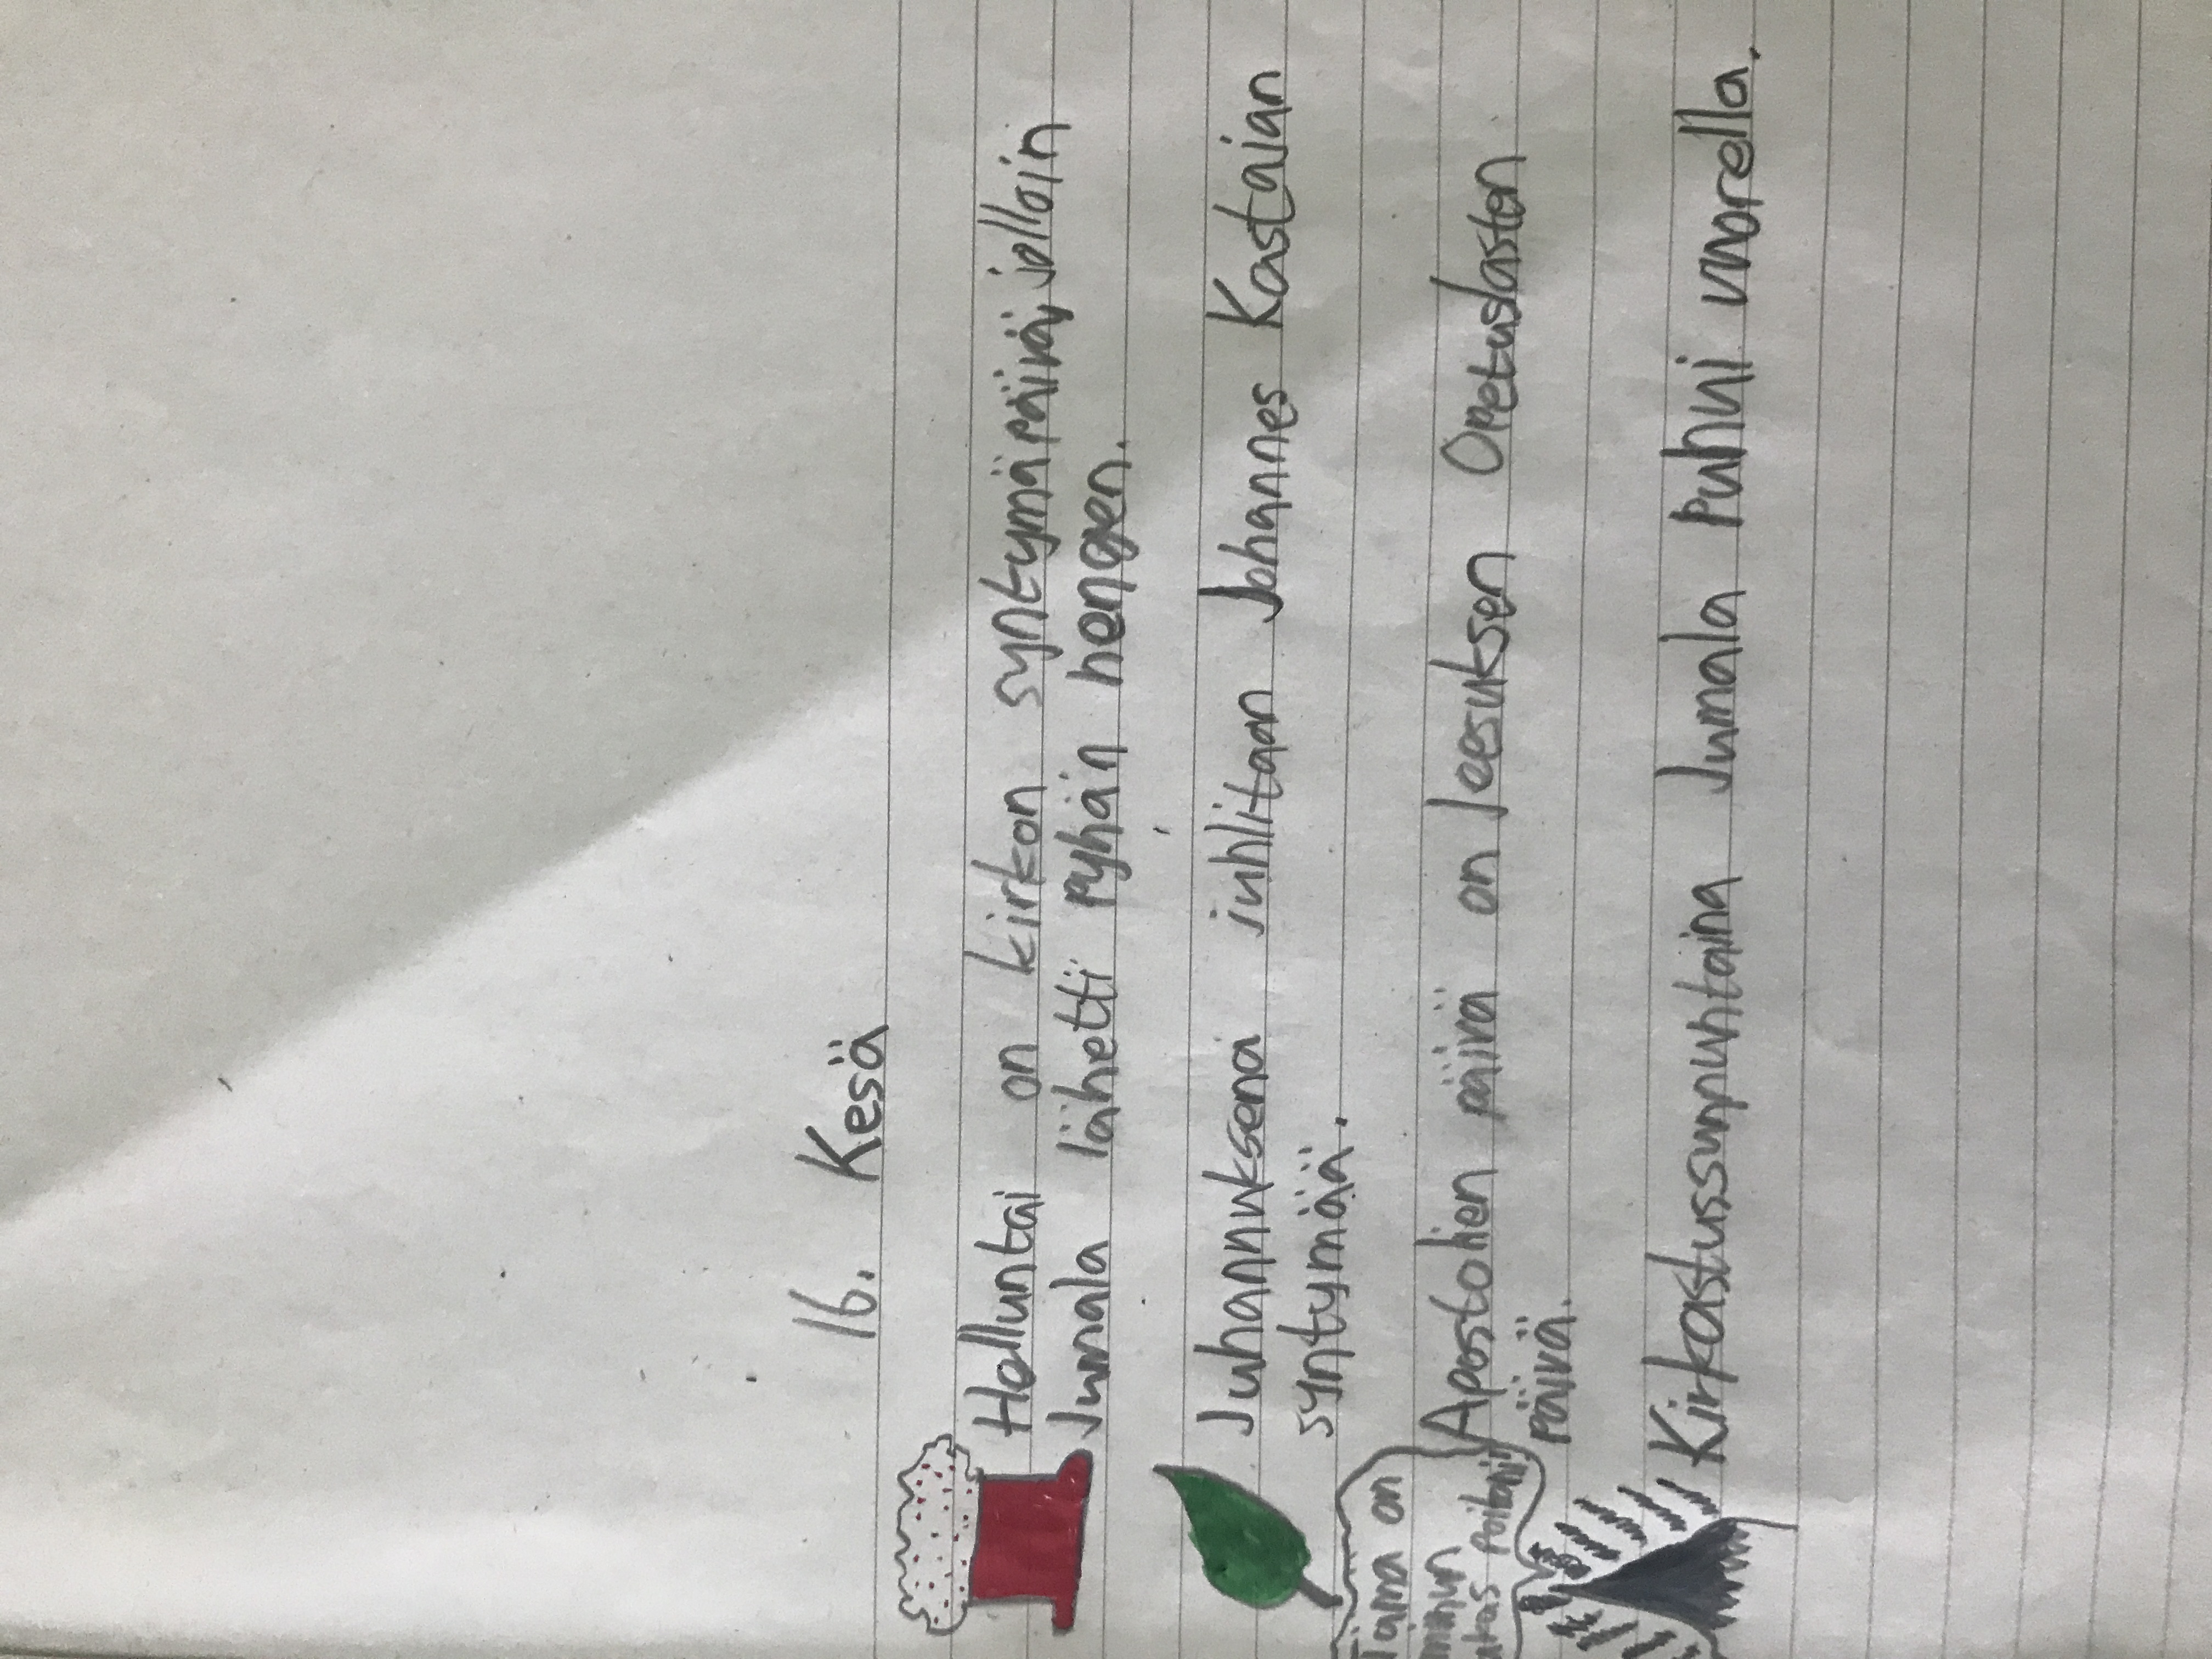 16. Kesä
Helluntai on kirkon syntymäpäivä, jolloin
Jumala lähetti pyhän hengen.
Juhannuksena juhlitaan Johannes Kastajan
syntymää.
Apostolien päivä on Jeesuksen Opetuslasten
päivä.
Kirkastussunnuntaina Jumala puhui vuorella.
Tämä on
minun
rakas poikani!